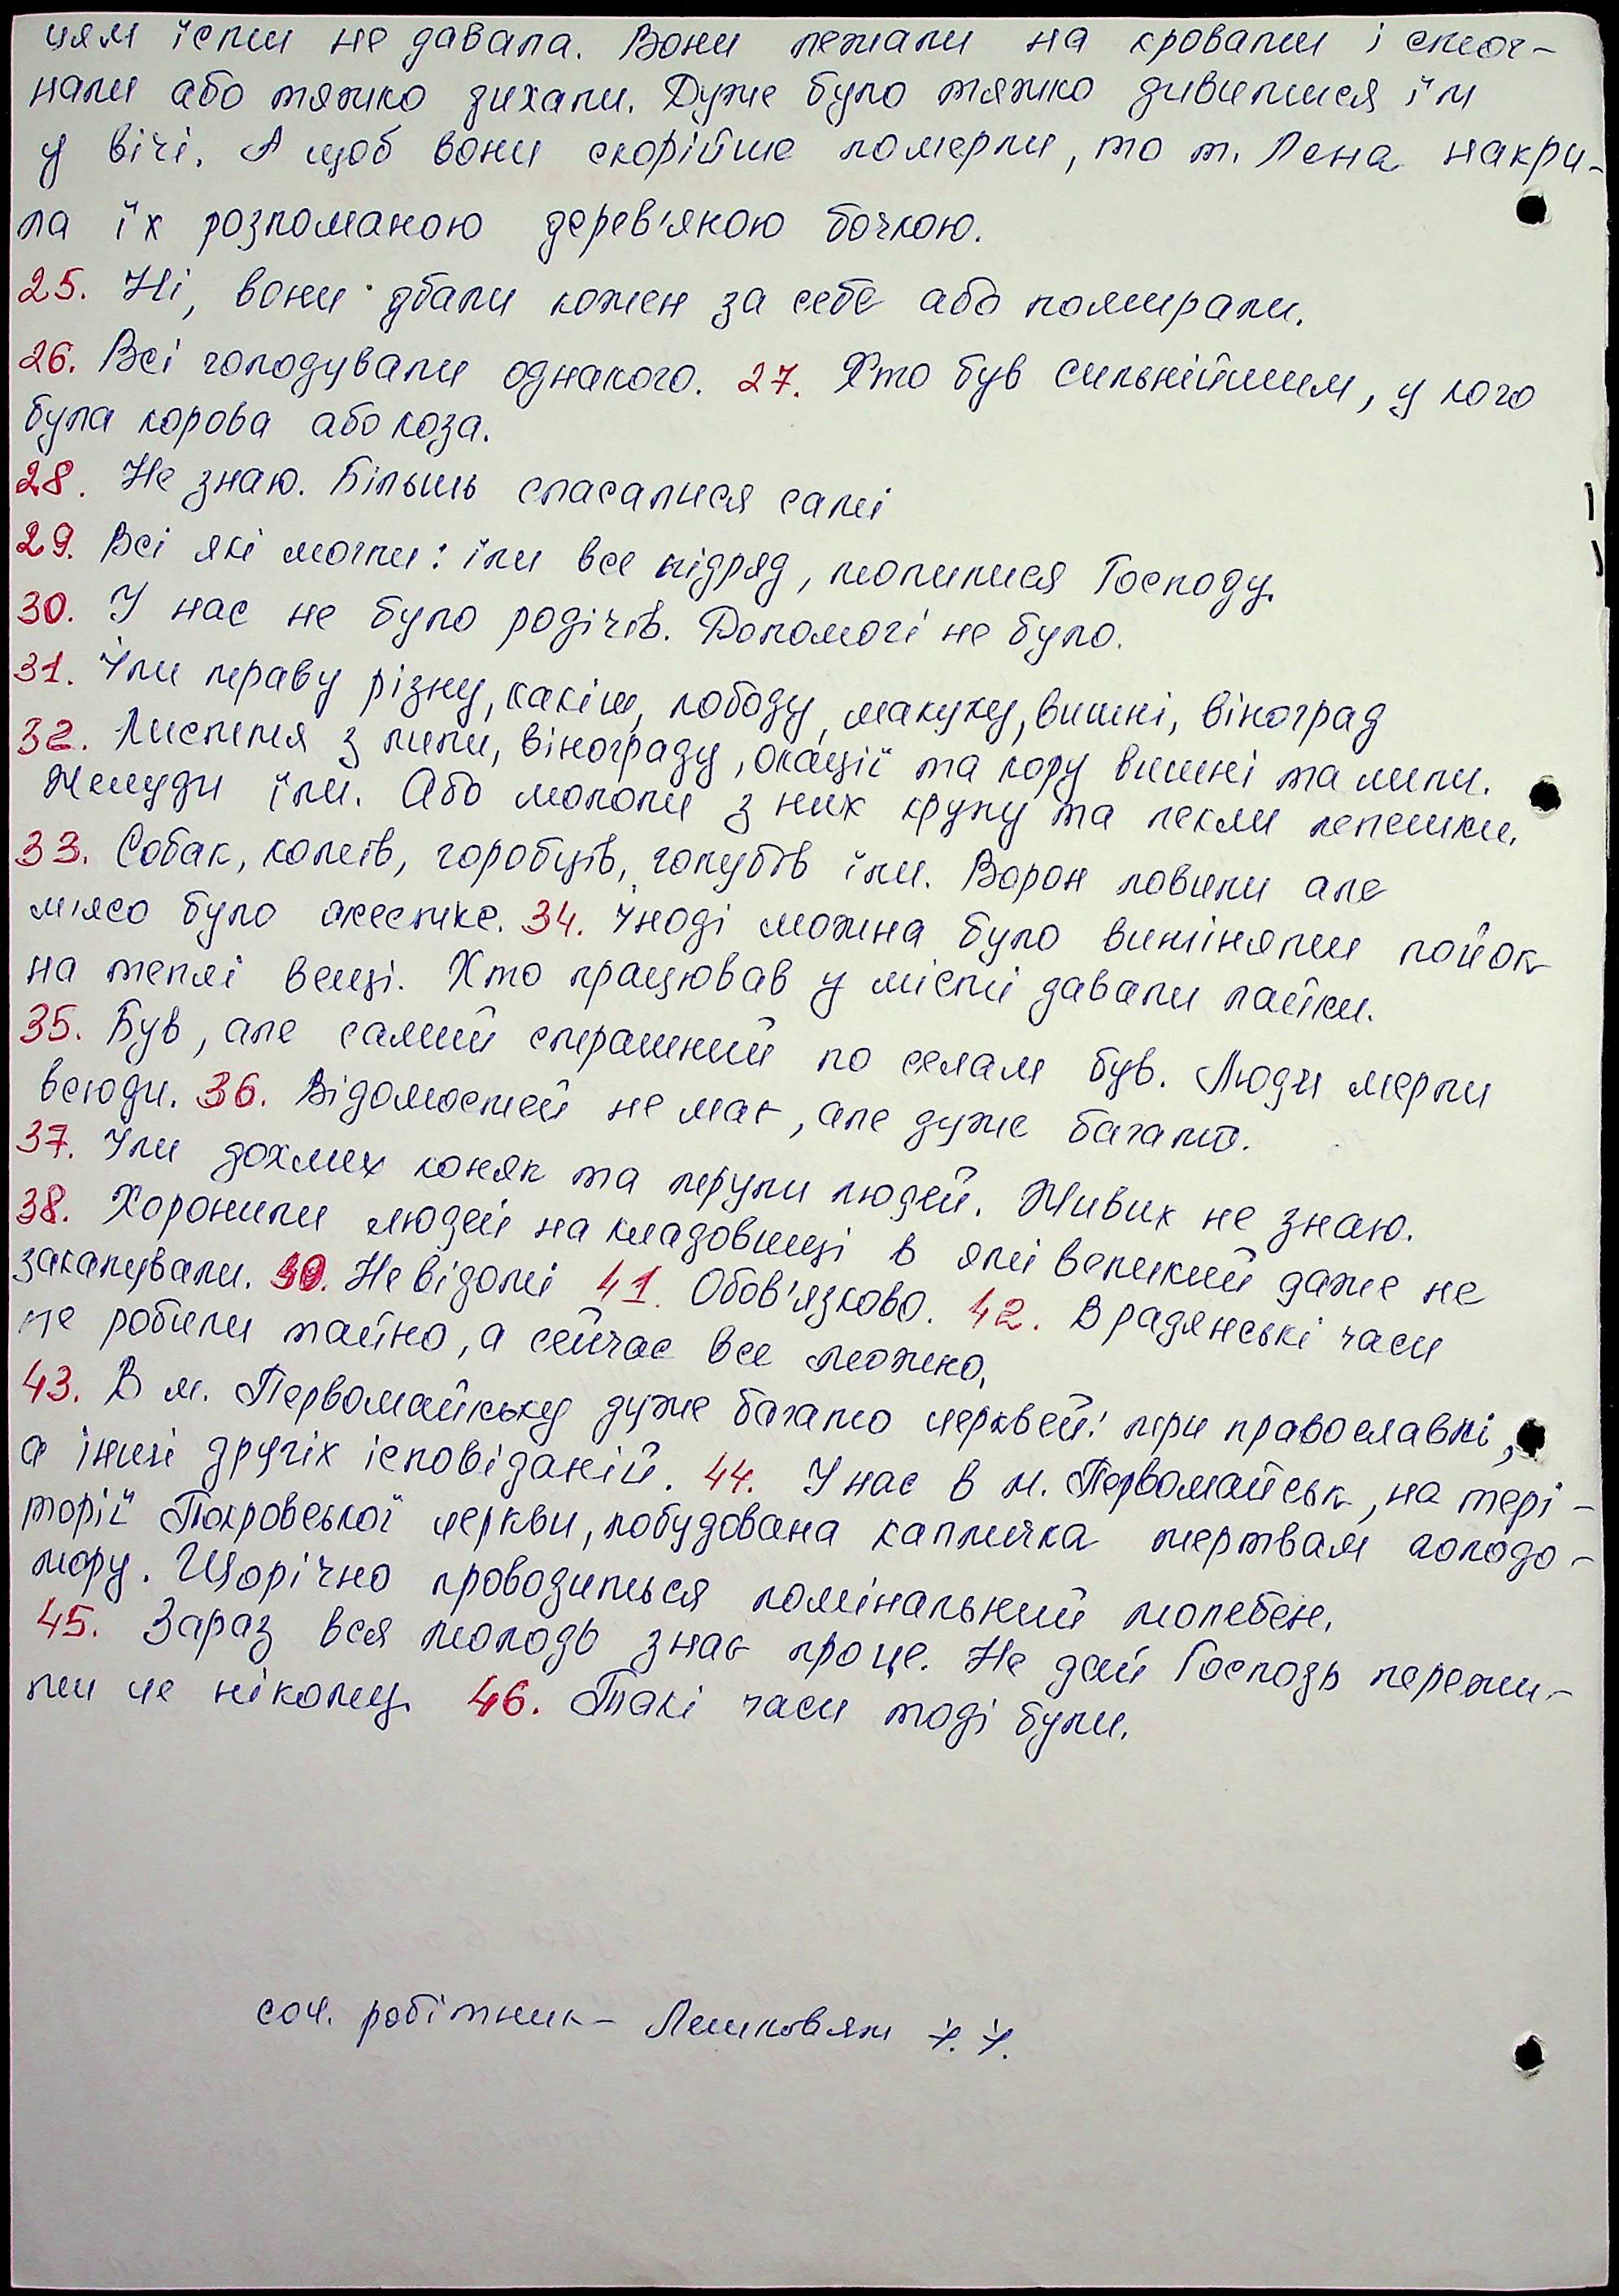 цям їсти не давала. Вони лежали на кроваті і стог-
нали або тяжко дихали. Дуже було тяжко дивитися їм
у вічі. А щоб вони скорійше померли, то т. Лена накри-
ла їх розломаною дерев'яною бочкою.
25. Ні, вони дбали кожен за себе або помирали.
26. Всі голодували однакого. 27. Хто був сильнійшим, у кого
була корова або коза.
28. Не знаю. Більшь спасалися самі
29. Всі які могли: їли все підряд, молилися Господу.
30. У нас не було родічів. Допомогі не було.
31. Їли траву різну, какіш, лободу, макуху, вишні, віноград
32. Листття з липи, вінограду, окації та кору вишні та липи.
Желуди їли. Або мололи з них крупу та пекли лепешки.
33. Собак, котів, горобців, голубів їли. Ворон ловили але
м'ясо було жестке. 34. Іноді можна було виміняти пойок
на теплі вещі. Хто працював у місті давали пайки.
35. Був, але самий страшний по селам був. Люди мерли
всюди. 36. Відомостей не має, але дуже багато.
37. Їли дохлих коняк та трупи людей. Живих не знаю.
38. Хоронили людей на кладовищі в ямі великий даже не
закапували. 39. Не відомі 41. Обов'язково. 42. В радянські часи
це робили тайно, а сейчас все можно.
43. В м. Первомайську дуже багато церквей: три православні,
а інші другіх ісповіданій. 44. У нас в м. Первомайськ, на тері-
торії Покровської церкви, побудована капличка жертвам голодо-
мору. Щорічно проводиться помінальний молебен.
45. Зараз вся молодь знає про це. Не дай Господь пережи-
ти це ніколи. 46. Такі часи тоді були.
соц. робітник – Лешковян І. І.